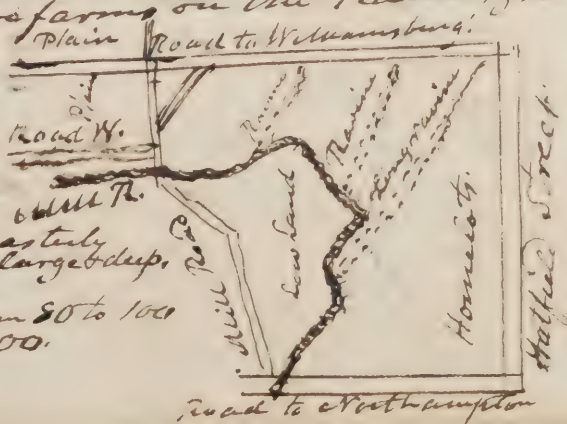 farms on the
Plain Road to Williamsburg.
Plain
Road W.
Mill R.
easterly
large & deep.
50 to 100
00.
Mill Rd
Ravine
Ravine
Long ravine
Low Land
Homelots.
Hatfield Street
Road to Northampton